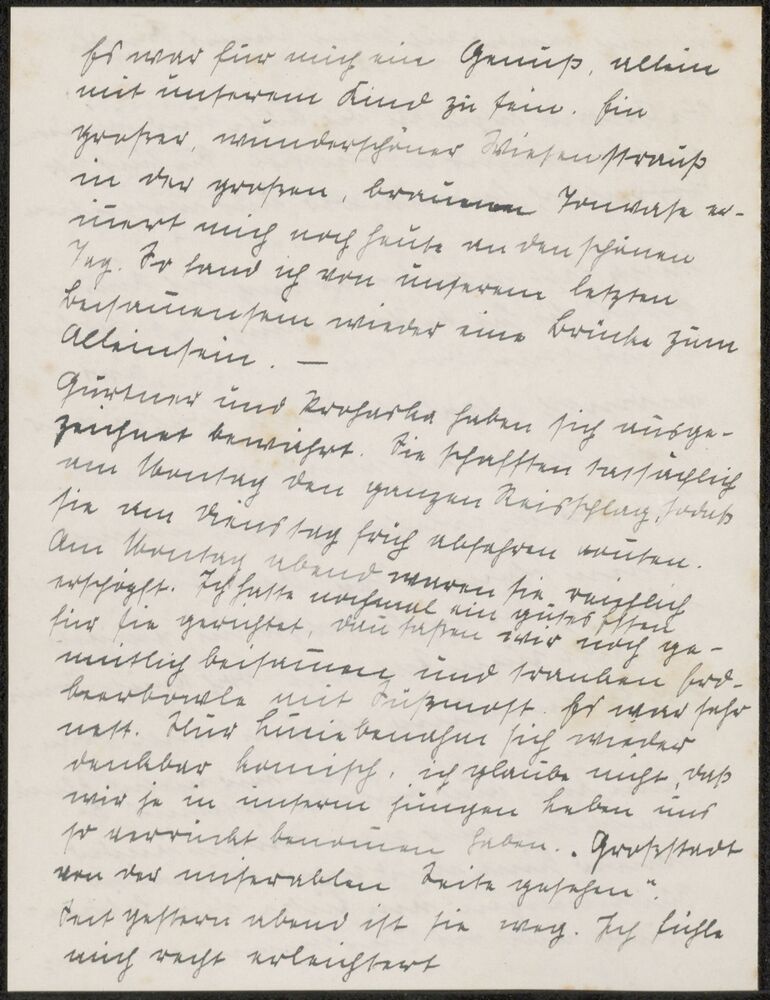 Es war für mich ein Genuß, allein
mit unserem Kind zu sein. Ein
großer, wunderschöner Wiesenstrauß
in der großen, braunen Tonvase er-
innert mich noch heute an den schönen
Tag. So fand ich von unserem letzten
Beisammensein wieder eine Brücke zum
Alleinsein. —
Gürtner und Prohaska haben sich ausge-
zeichnet bewährt. Sie schafften tatsächlich
am Montag den ganzen Reisschlag, sodaß
sie am Dienstag früh abfahren konnten.
Am Montag abend waren sie reichlich
erschöpft. Ich hatte nochmal ein gutes Essen
für sie gerichtet, dann saßen wir noch ge-
mütlich beisammen und tranken Erd-
beerbowle mit Süßmost. Es war sehr
nett. Nur Luzie benahm sich wieder
denkbar komisch, ich glaube nicht, daß
wir je in unserm jungen Leben uns
so verrückt benommen haben. „Großstadt
von der miserablen Seite gesehen".
Seit gestern abend ist sie weg. Ich fühle
mich recht erleichtert